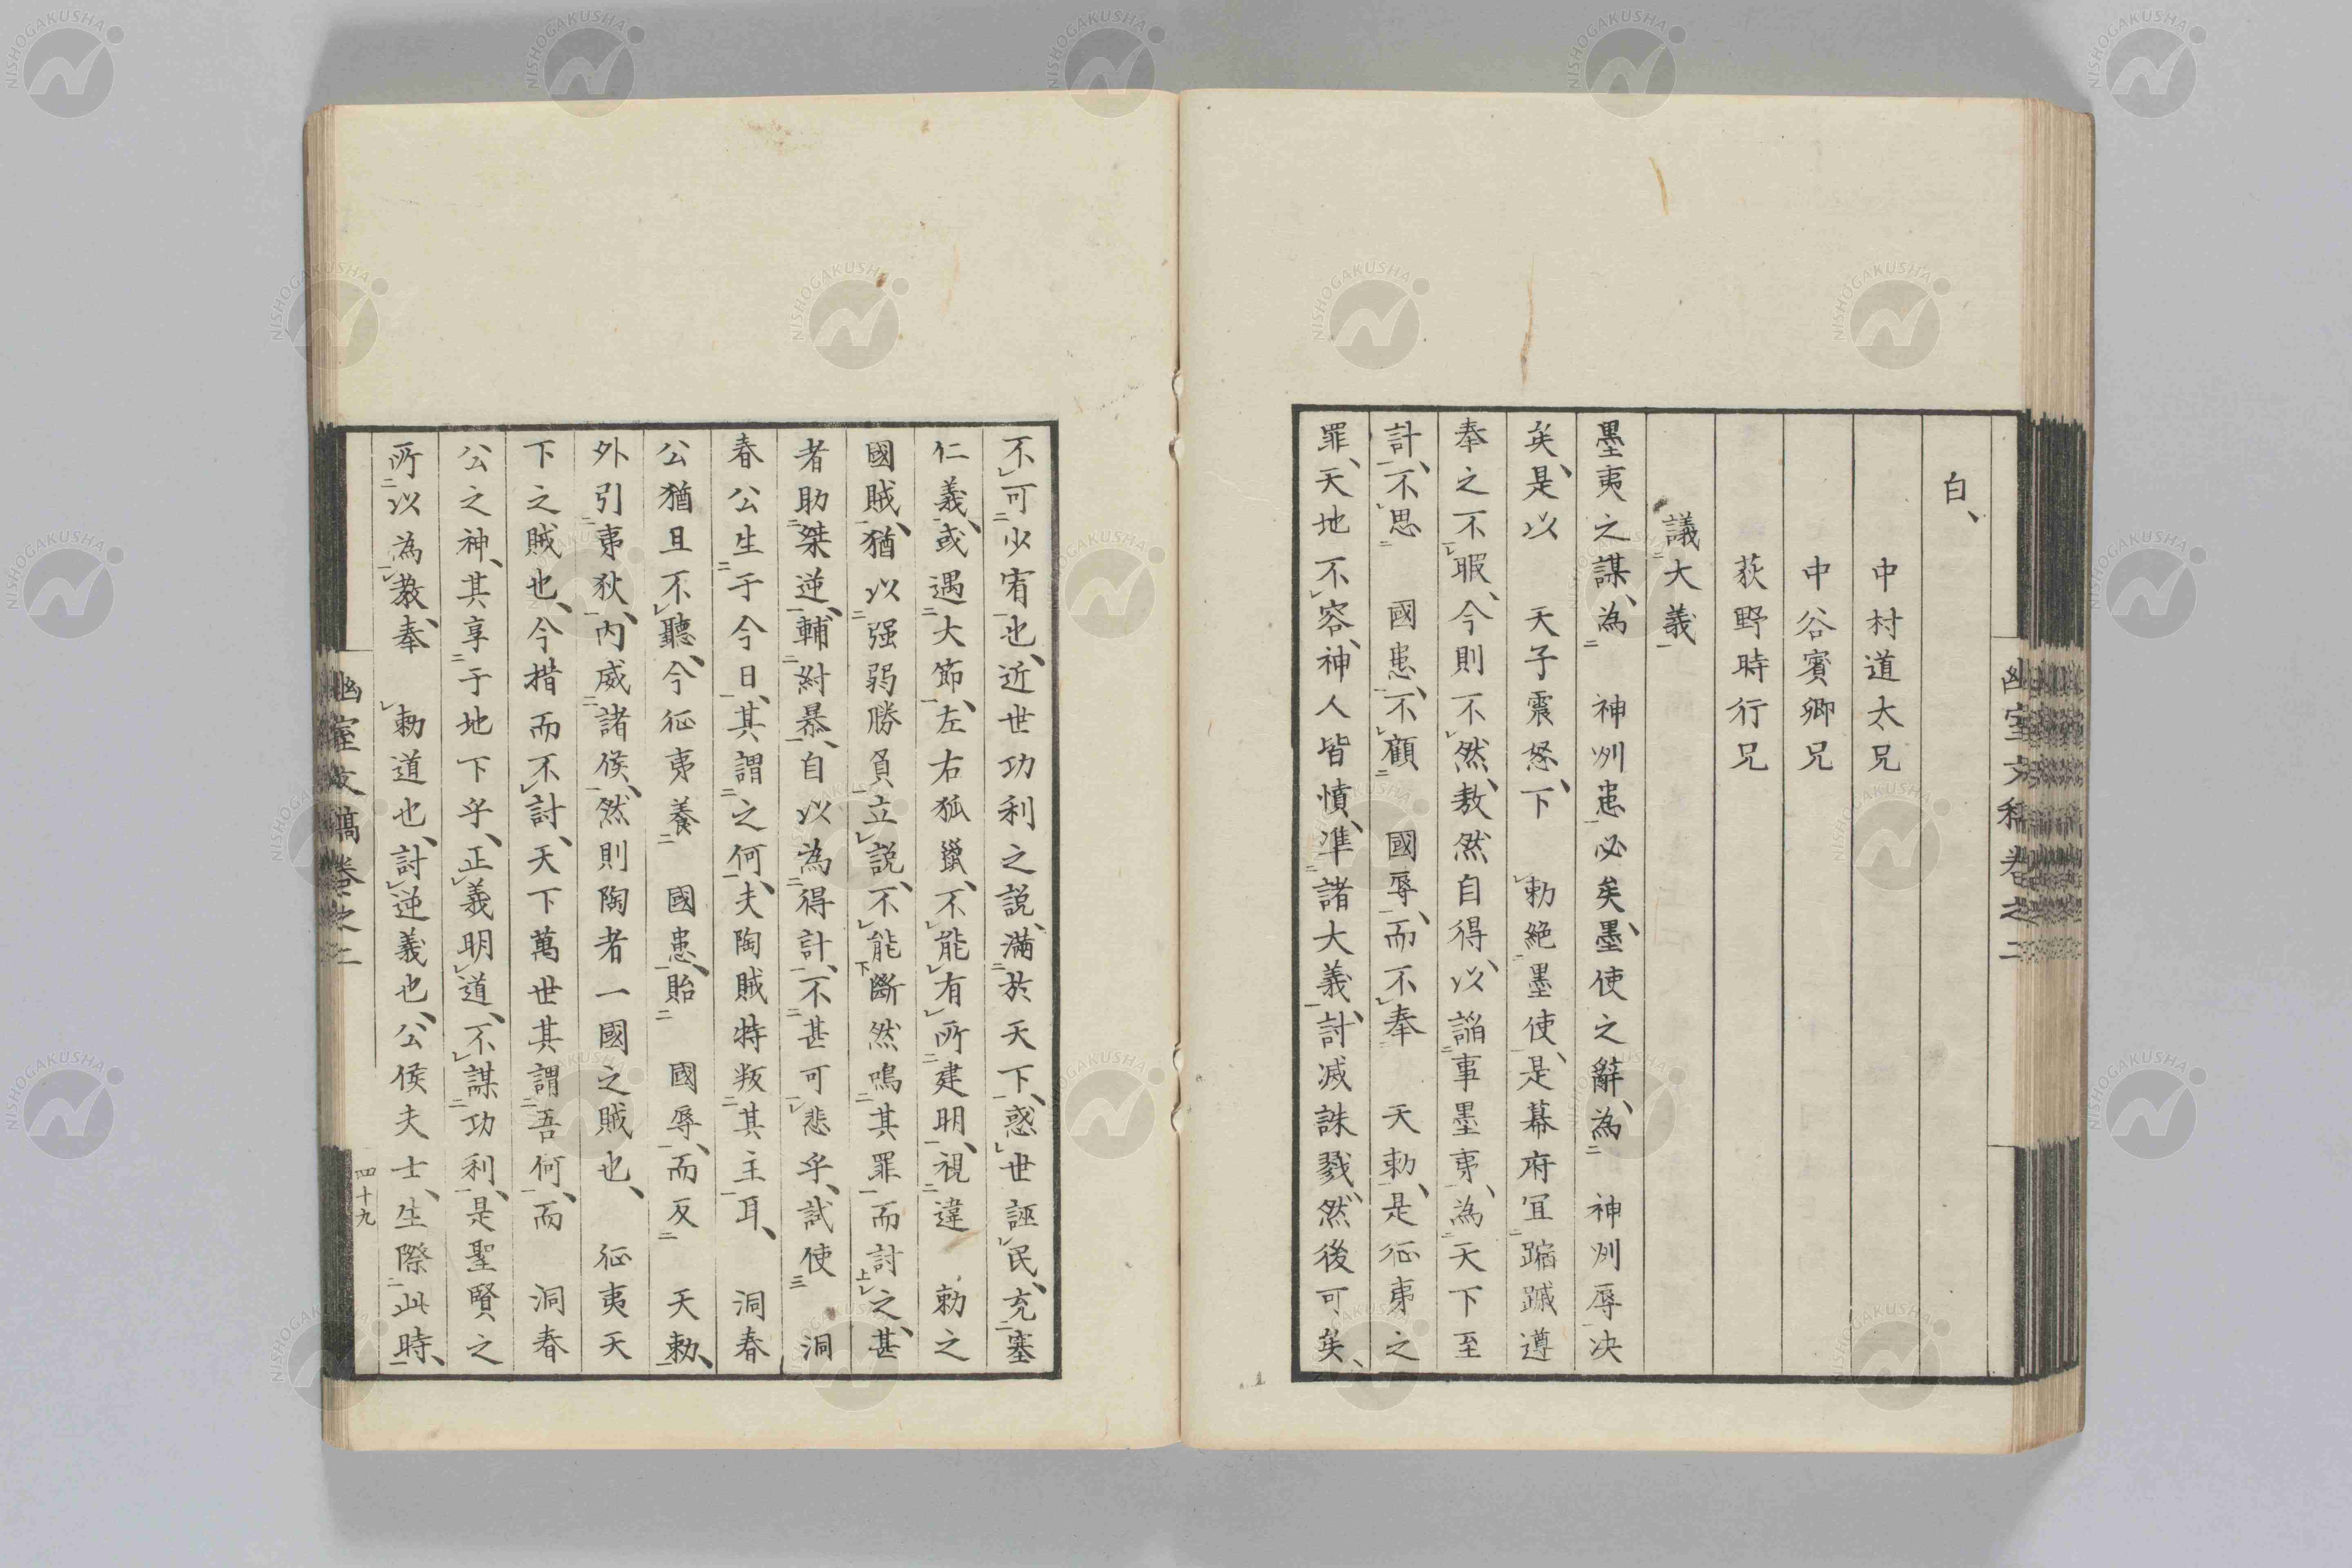 白、
中村道太兄
中谷賓卿兄
荻野時行兄
議大義
墨夷之謀、為 神州患必矣、墨使之辭、為 神州辱決
矣、是以 天子震怒、下 勅絕墨使、是幕府宜蹜蹙遵
奉之不暇、今則不然、敖然自得、以諂事墨夷、為天下至
計、不思 國患、不顧 國辱、而不奉 天勅、是征夷之
罪、天地不容、神人皆憤、準諸大義、討滅誅戮、然後可矣、
不可少宥也、近世功利之説、滿於天下、惑世誣民、充塞
仁義、或遇大節、左右狐鼠、不能有所建明、視違 勅之
國賊、猶以强弱勝負立説、不能斷然鳴其罪而討之、甚
者助桀逆、輔紂暴、自以為得計、不甚可悲乎、試使 洞
春公生于今日、其謂之何、夫陶賊特叛其主耳、 洞春
公猶且不聽、今征夷養 國患、貽 國辱、而反 天勅、
外引夷狄、内威諸侯、然則陶者一國之賊也、 征夷天
下之賊也、今措而不討、天下萬世其謂吾何、而 洞春
公之神、其享于地下乎、正義明道、不謀功利、是聖賢之
所以為教、奉 勅道也、討逆義也、公侯夫士、生際此時、
幽室文稿卷之二
四十九
NISHOGAKUSHA